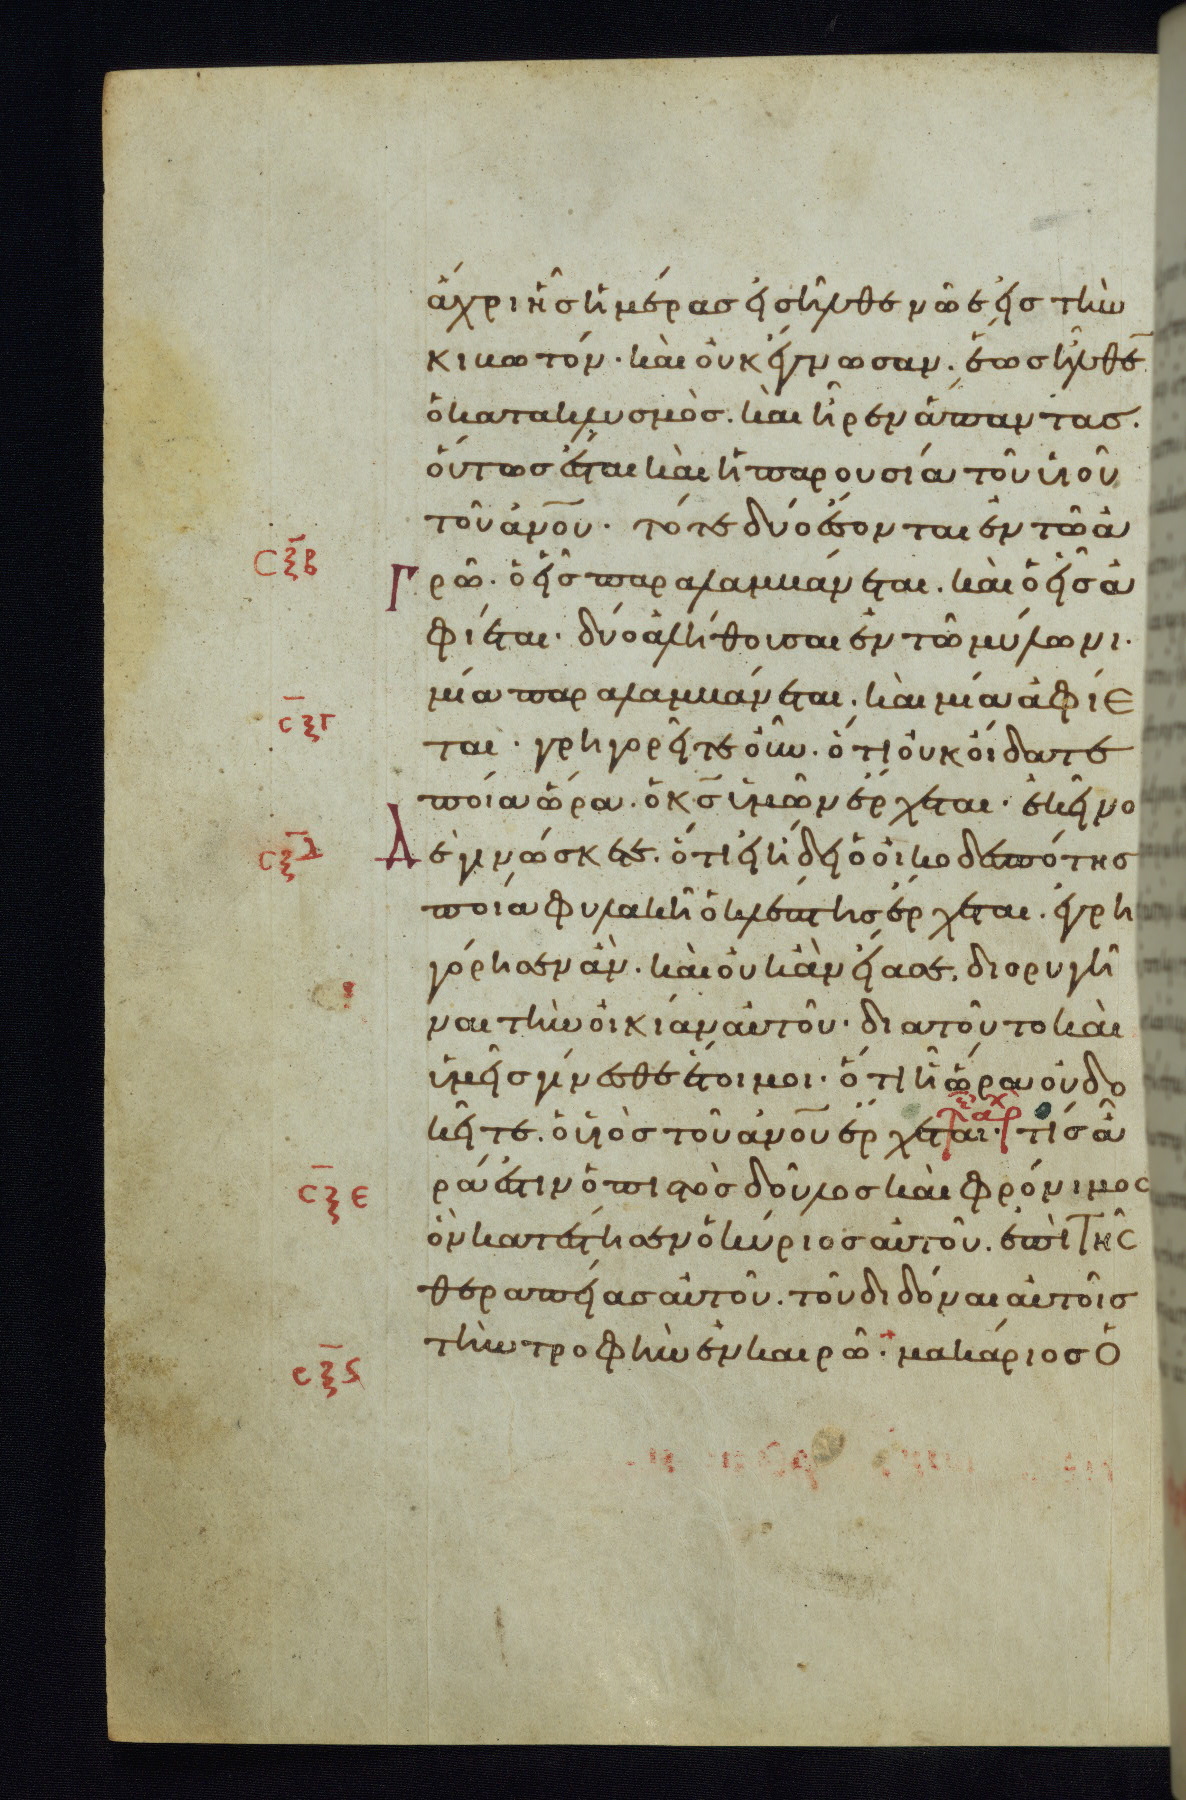 ἄχρι ἧς ἡμέρας εἰσῆλθε νῶε εἰς τὴν
κιβωτόν· καὶ οὐκ ἔγνωσαν. ἕως ἦλθεν
ὁ κατακλυσμὸς. καὶ ἦρεν ἅπαντας.
οὕτως ἔσται καὶ ἡ παρουσία τοῦ υἱοῦ
τοῦ ἀν̅ου· τότε δύο ἔσονται ἐν τῶ ἀ
σ̅ξβ
γρῶ. ὁ εἷς παραλαμβάνεται. καὶ ὁ εἷς ἀ
φίεται· δύο ἀλήθουσαι ἐν τῶ μύλωνι·
μία παραλαμβάνεται. καὶ μία ἀφίε
σ̅ξγ
ται· γρηγορεῖτε οὖν. ὅτι οὐκ οἴδατε
ποία ὥρα. ὁ κ̅ς ὑμῶν ἔρχεται· ἐκεῖνο
σ̅ξδ
δὲ γινώσκετε. ὅτι εἰ ἤδει ὁ οἰκοδεσπότης
ποία φυλακῆ ὁ κλέπτης ἔρχεται. ἐγρη
γόρησεν ἂν. καὶ οὐκ ἂν εἴασε. διορυγῆ
ναι τὴν οἰκίαν αὐτοῦ· διατοῦτο καὶ
ὑμεῖς γίνεσθε ἕτοιμοι· ὅτι ἧ ὥρα οὐ δο
κεῖτε. ὁ υἱὸς τοῦ ἀν̅ου ἔρχεται· τίς ἆ
ἀρχ
σ̅ξε
ρά ἐστιν ὁ πιστὸς δοῦλος καὶ φρόνιμος
ὃν κατέστησεν ὁ κύριος αὐτοῦ. ἐπὶ τῆς
θεραπείας αὐτοῦ. τοῦ διδόναι αὐτοῖς
τὴν τροφὴν ἐν καιρῶ· μακάριος ὁ
σ̅ξϛ